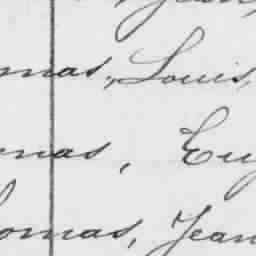 mas, Louis,
mas, Eug
omas, Jean